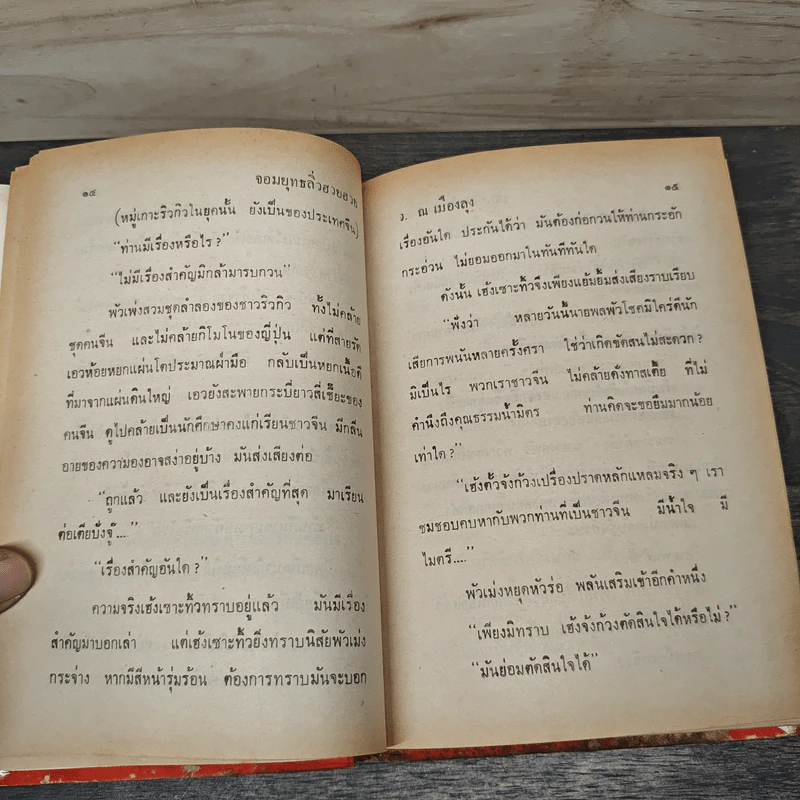 ๑๔
จอมยุทธลิ่วฮวยฮวย
(หมู่เกาะริวกิวในยุคนั้น ยังเป็นของประเทศจีน)
“ท่านมีเรื่องหรือไร ?”
“ไม่มีเรื่องสำคัญมิกล้ามารบกวน”
พัวเพ่งสวมชุดลำลองของชาวริวกิว ทั้งไม่คล้าย
ชุดคนจีน และไม่คล้ายกิโมโนของญี่ปุ่น แต่ที่สายรัด
เอวห้อยหยกแผ่นโตประมาณฝ่ามือ กลับเป็นหยกเนื้อดี
ที่มาจากแผ่นดินใหญ่ เอวยังสะพายกระบี่ยาวสี่เชี๊ยะของ
คนจีน ดูไปคล้ายเป็นนักศึกษาคงแก่เรียนชาวจีน มีกลิ่น
อายของความองอาจสง่าอยู่บ้าง มันส่งเสียงต่อ
“ถูกแล้ว และยังเป็นเรื่องสำคัญที่สุด มาเรียน
ต่อเตียบั่งจู๊....”
“เรื่องสำคัญอันใด ?”
ความจริงเฮ้งเซาะทิ้วทราบอยู่แล้ว มันมีเรื่อง
สำคัญมาบอกเล่า แต่เฮ้งเซาะทิ้วยิ่งทราบนิสัยพัวเม่ง
กระจ่าง หากมีสีหน้ารุ่มร้อน ต้องการทราบมันจะบอก
ว. ณ เมืองลุง
๑๕
เรื่องอันใด ประกันได้ว่า มันต้องก่อกวนให้ท่านกระอัก
กระอ่วน ไม่ยอมออกมาในทันทีทันใด
ดังนั้น เฮ้งเซาะทิ้วจึงเพียงแย้มยิ้มส่งเสียงราบเรียบ
“ฟังว่า หลายวันนี้นายพลพัวโชคมิใคร่ดีนัก
เสียการพนันหลายครั้งครา ใช่ว่าเกิดขัดสนไม่สะดวก ?
มิเป็นไร พวกเราชาวจีน ไม่คล้ายคั่งทาสเตี้ย ที่ไม่
คำนึงถึงคุณธรรมน้ำมิตร ท่านคิดจะขอยืมมากน้อย
เท่าใด ?”
“เฮ้งตั้วจังก้วงเปรื่องปราดหลักแหลมจริง ๆ เรา
ชมชอบคบหากับพวกท่านที่เป็นชาวจีน มีน้ำใจ มี
ไมตรี....”
พัวเม่งหยุดหัวร่อ พลันเสริมเข้าอีกคำหนึ่ง
“เพียงมิทราบ เฮ้งจังก้วงตัดสินใจได้หรือไม่ ?”
“มันย่อมตัดสินใจได้”